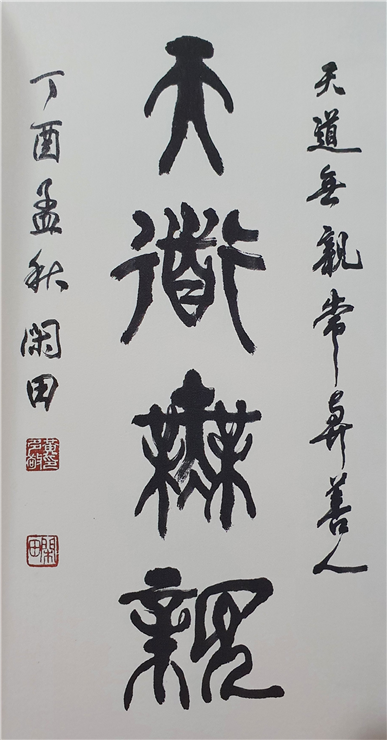 天道無親常與善人
天道無親
丁酉孟秋閑田
閑田